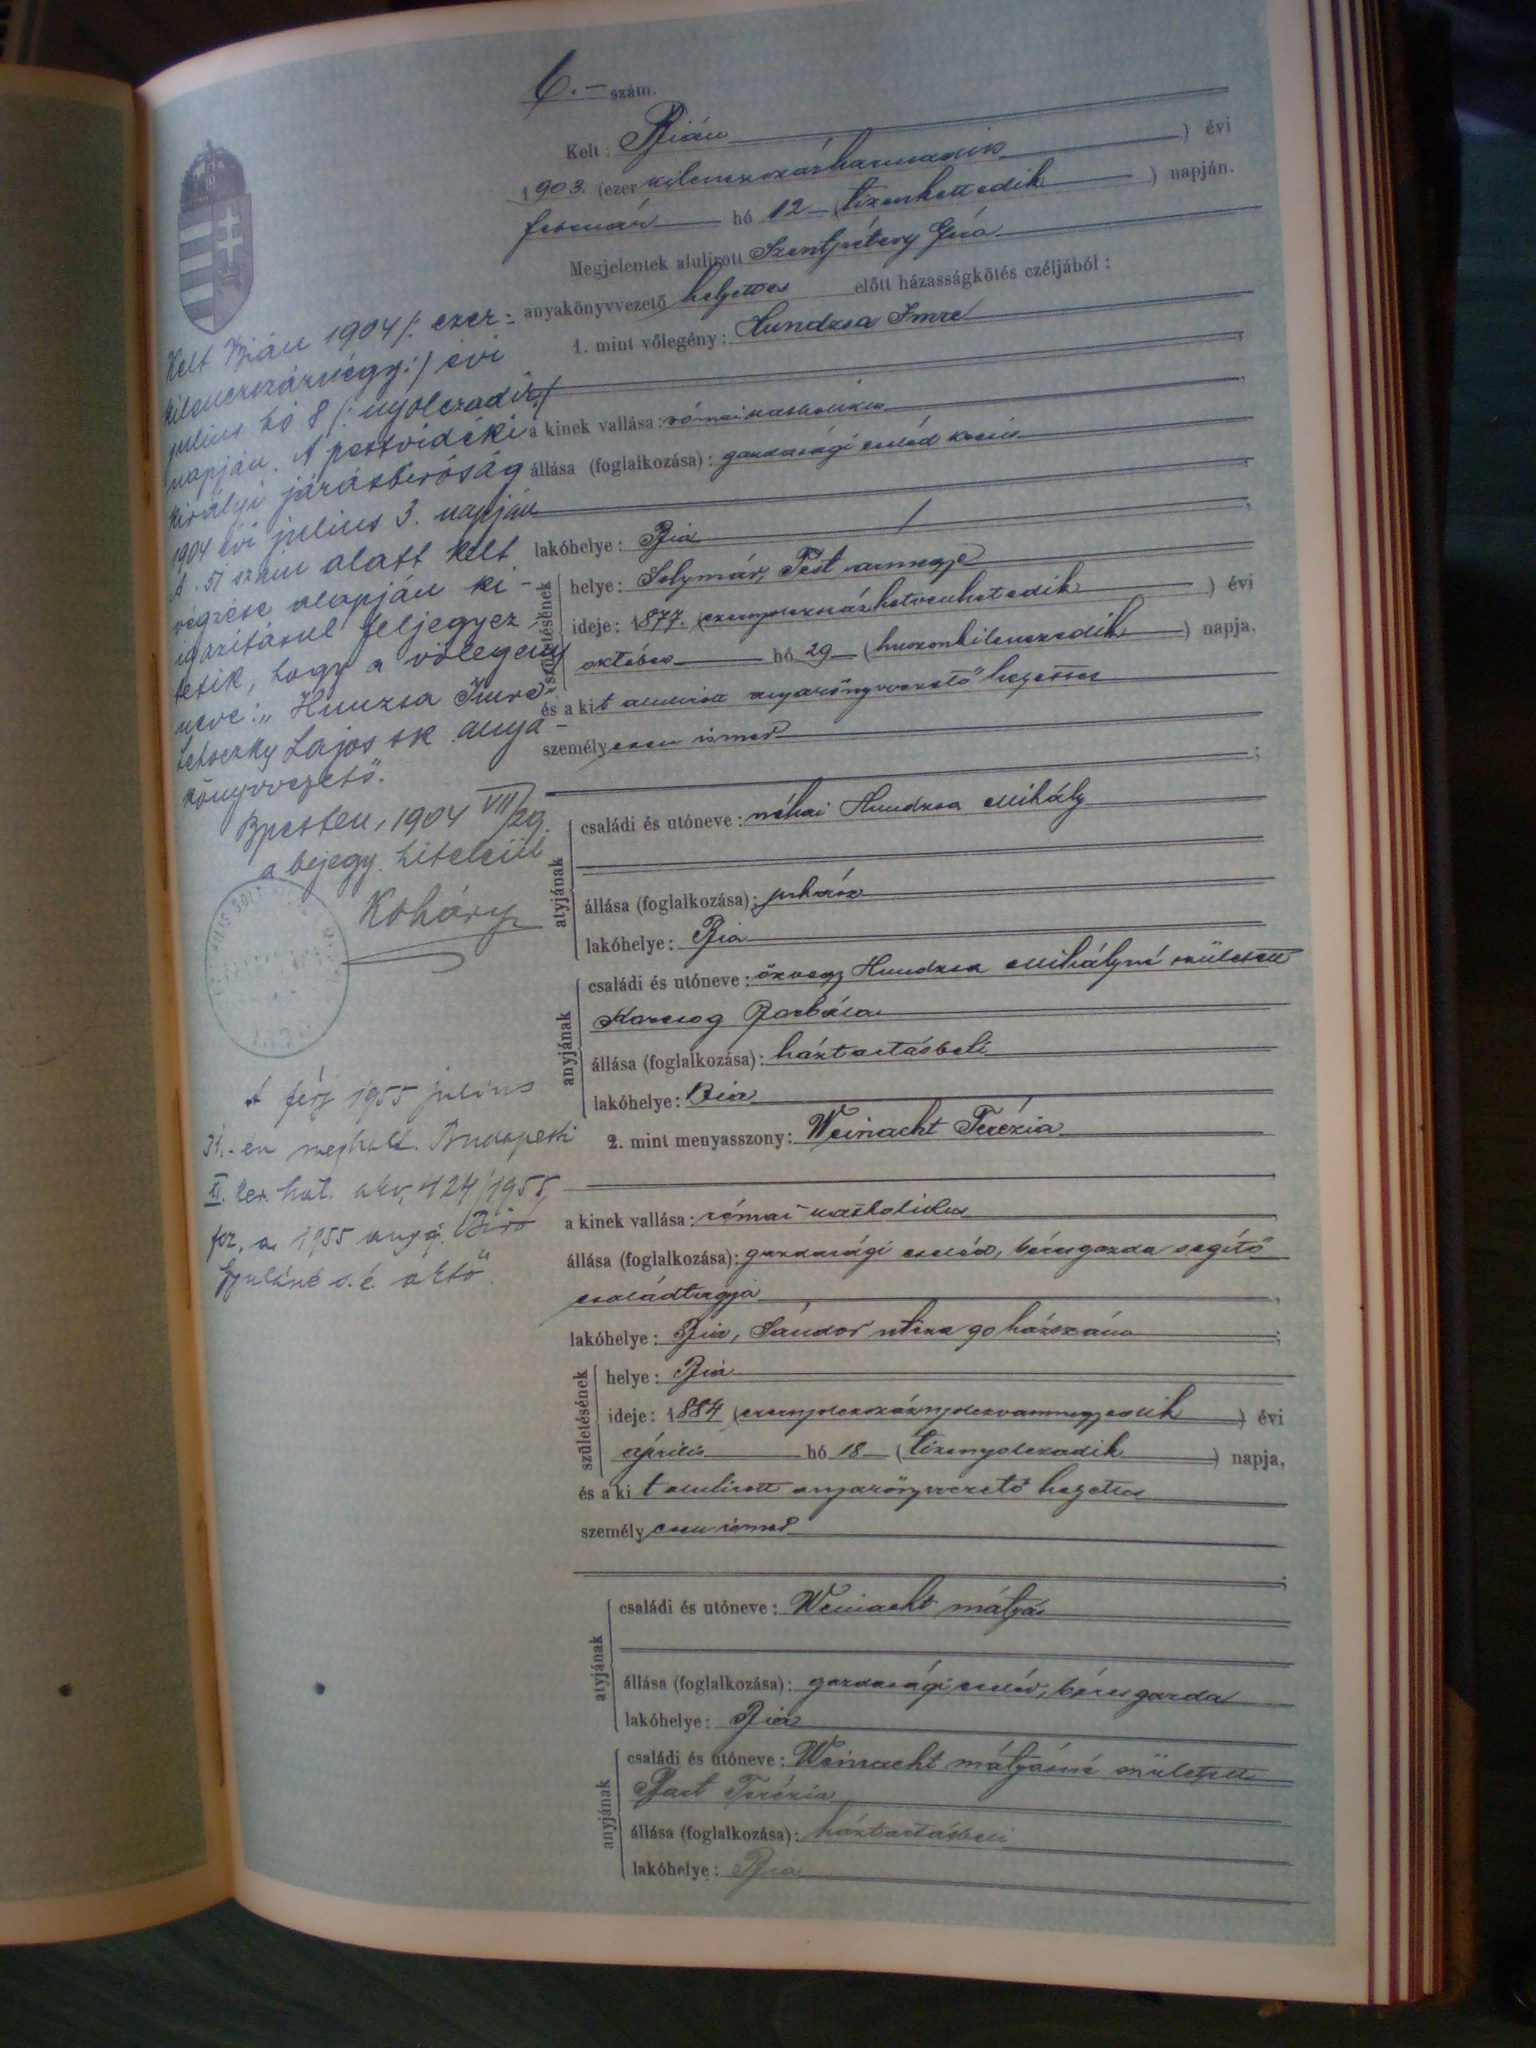 6.- szám.
Kelt: Bián
1903. (ezer kilenczszázharmadik) évi
február hó 12 (tizenkettedik) napján.
Megjelentek alulirott Szentpétery Géza
anyakönyvvezető helyettes előtt házasságkötés czéljából:
1. mint vőlegény: Hundzsa Imre
a kinek vallása: római katholikus
állása (foglalkozása): gazdasági cseléd kocsis
lakóhelye: Bia
születésének
helye: Solymár, Pest vármegye
ideje: 1877. (ezernyolczszázhetvenhetedik) évi
október hó 29 (huszonkilenczedik) napja,
és a kit alulirott anyakönyvvezető helyettes
személyesen ismer
atyjának
családi és utóneve: néhai Hundzsa Mihály
állása (foglalkozása): juhász
lakóhelye: Bia
anyjának
családi és utóneve: özvegy Hundzsa Mihályné született
Karcsog Borbála
állása (foglalkozása): háztartásbeli
lakóhelye: Bia
2. mint menyasszony: Weinacht Terézia
a kinek vallása: római katholikus
állása (foglalkozása): gazdasági cseléd, béresgazda segítő
családtagja
lakóhelye: Bia, Sándor utcza 90 házszám
születésének
helye: Bia
ideje: 1884 (ezernyolczszáznyolczvannegyedik) évi
április hó 18 (tizennyolczadik) napja,
és a kit alulirott anyakönyvvezető helyettes
személyesen ismer
atyjának
családi és utóneve: Weinacht Mátyás
állása (foglalkozása): gazdasági cseléd, béres gazda
lakóhelye: Bia
anyjának
családi és utóneve: Weinacht Mátyásné született
Terézia
állása (foglalkozása): háztartásbeli
lakóhelye: Bia
Kelt Bián 1904 /: ezer-
kilenczszáznégy :/ évi
julius hó 8 /: nyolczadik :/
napján. A pestvidéki
királyi járásbiróság
1904 évi julius 3. napján
A. 51 szám alatt kelt
végzése alapján ki-
igazitásul feljegyez-
tetik, hogy a vőlegény
neve: „Hunzsa Imre"
Letoczky Lajos sk. anya-
könyvvezető.
Bpesten, 1904 VII/29.
a bejegy. hiteléül
Koháry
A férj 1955 julius
31.-én meghalt. Budapesti
XI. ker. hal. akv. 424/1955,
fog. a. 1955 aug. Biró
Gyuláné s. k. akvő.